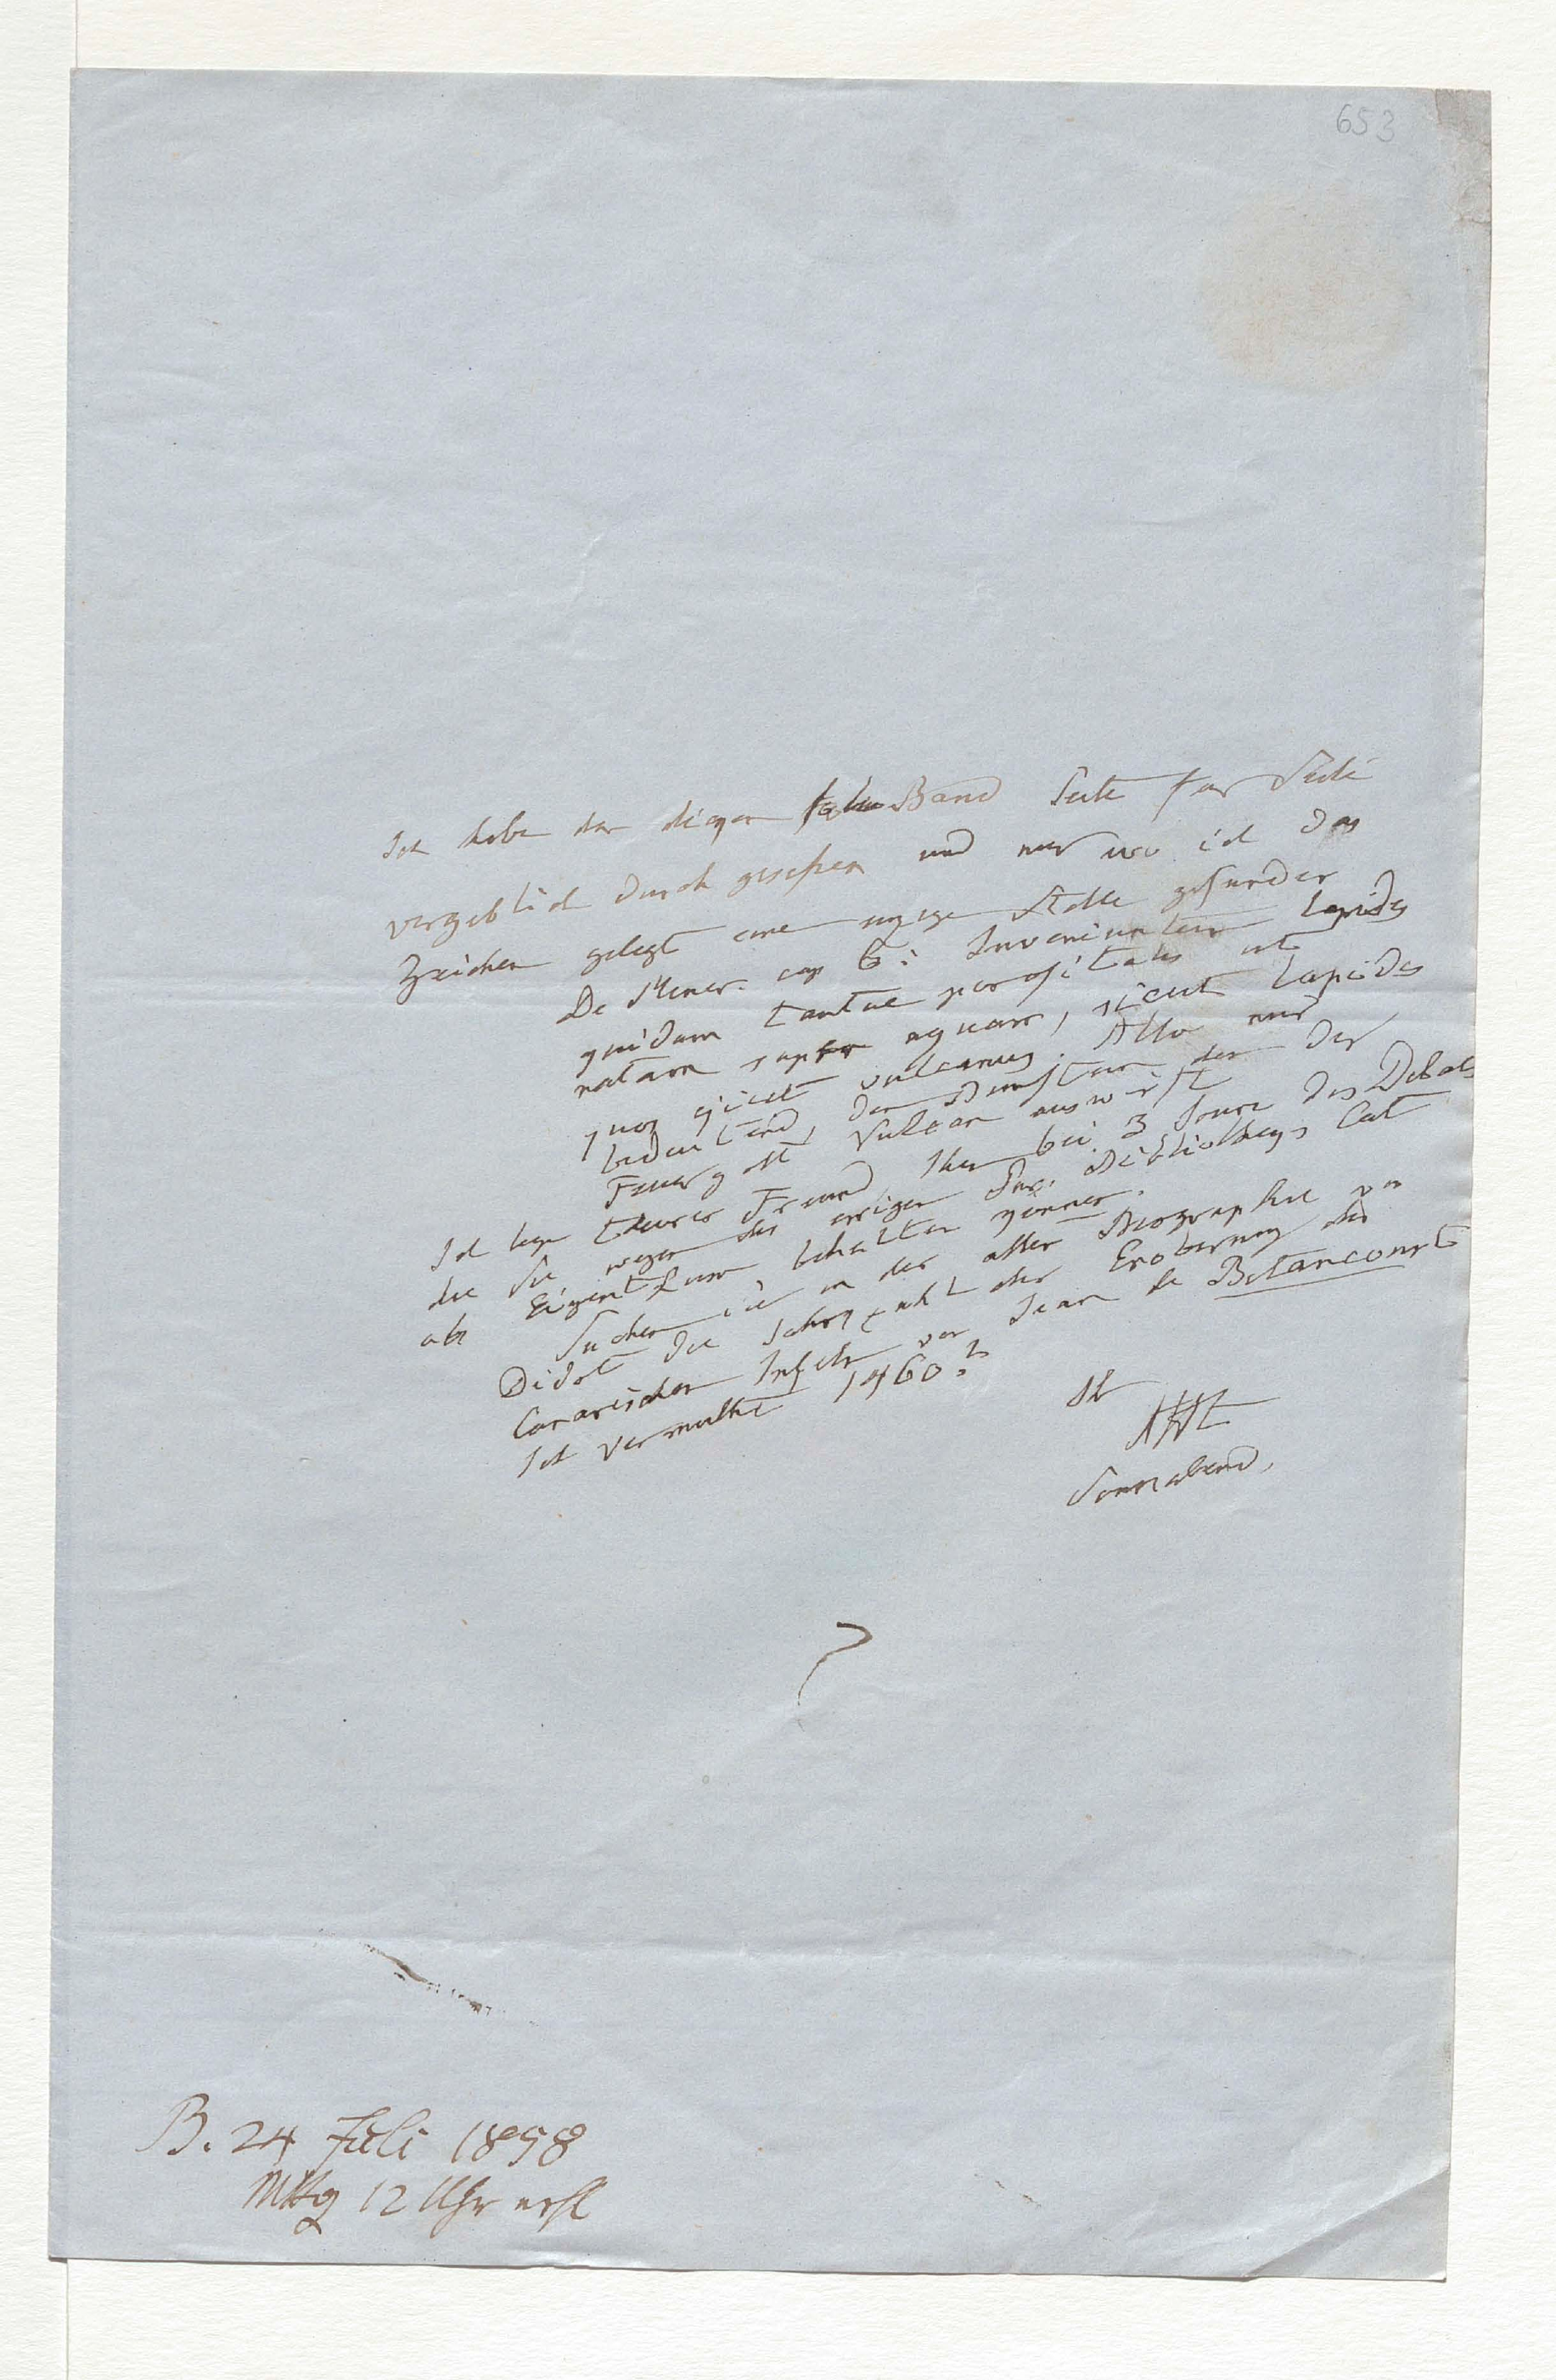 653
Ich habe den diesen Band Seite für Seite
vergeblich durch gesehen und nur wo ich das
Zeichen gelegt eine einzige Stelle gefunden
De Miner. cap 6: Inveniuntur lapides
quidam tantae porositatis ut
natant super aquam, sicut lapides
quos ejicit vulcanus. Also nur
bedeutend, den Bimstein den der
Feuergott Vulcan auswirft
Ich lege theurer Freund, Ihnen bei 3 Journ des Debats
die Sie wegen des Bibliotheks Cat
als Eigenthum behalten können.
Suchen Sie in der alten Biographie von
Didot die Jahrzahl der Eroberung der
Canarischen Inseln von Jean de Betancourt
Ich vermuthe 1460?
Ihr
AHt
Sonnabend,
B. 24 Juli 1858
Mttg 12 Uhr erh